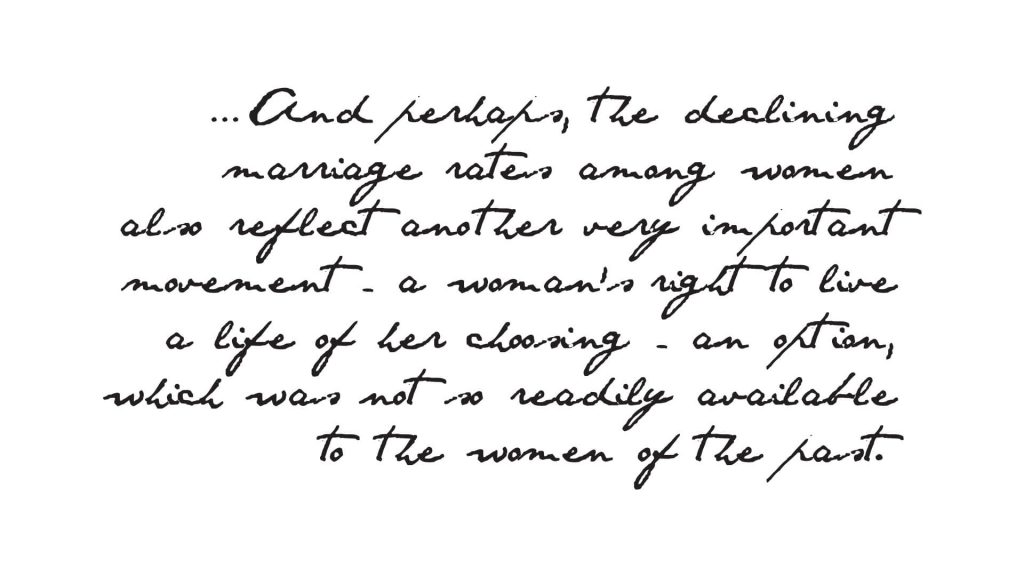 ...And perhaps, the declining
marriage rates among women
also reflect another very important
movement - a woman's right to live
a life of her choosing - an option,
which was not so readily available
to the women of the past.